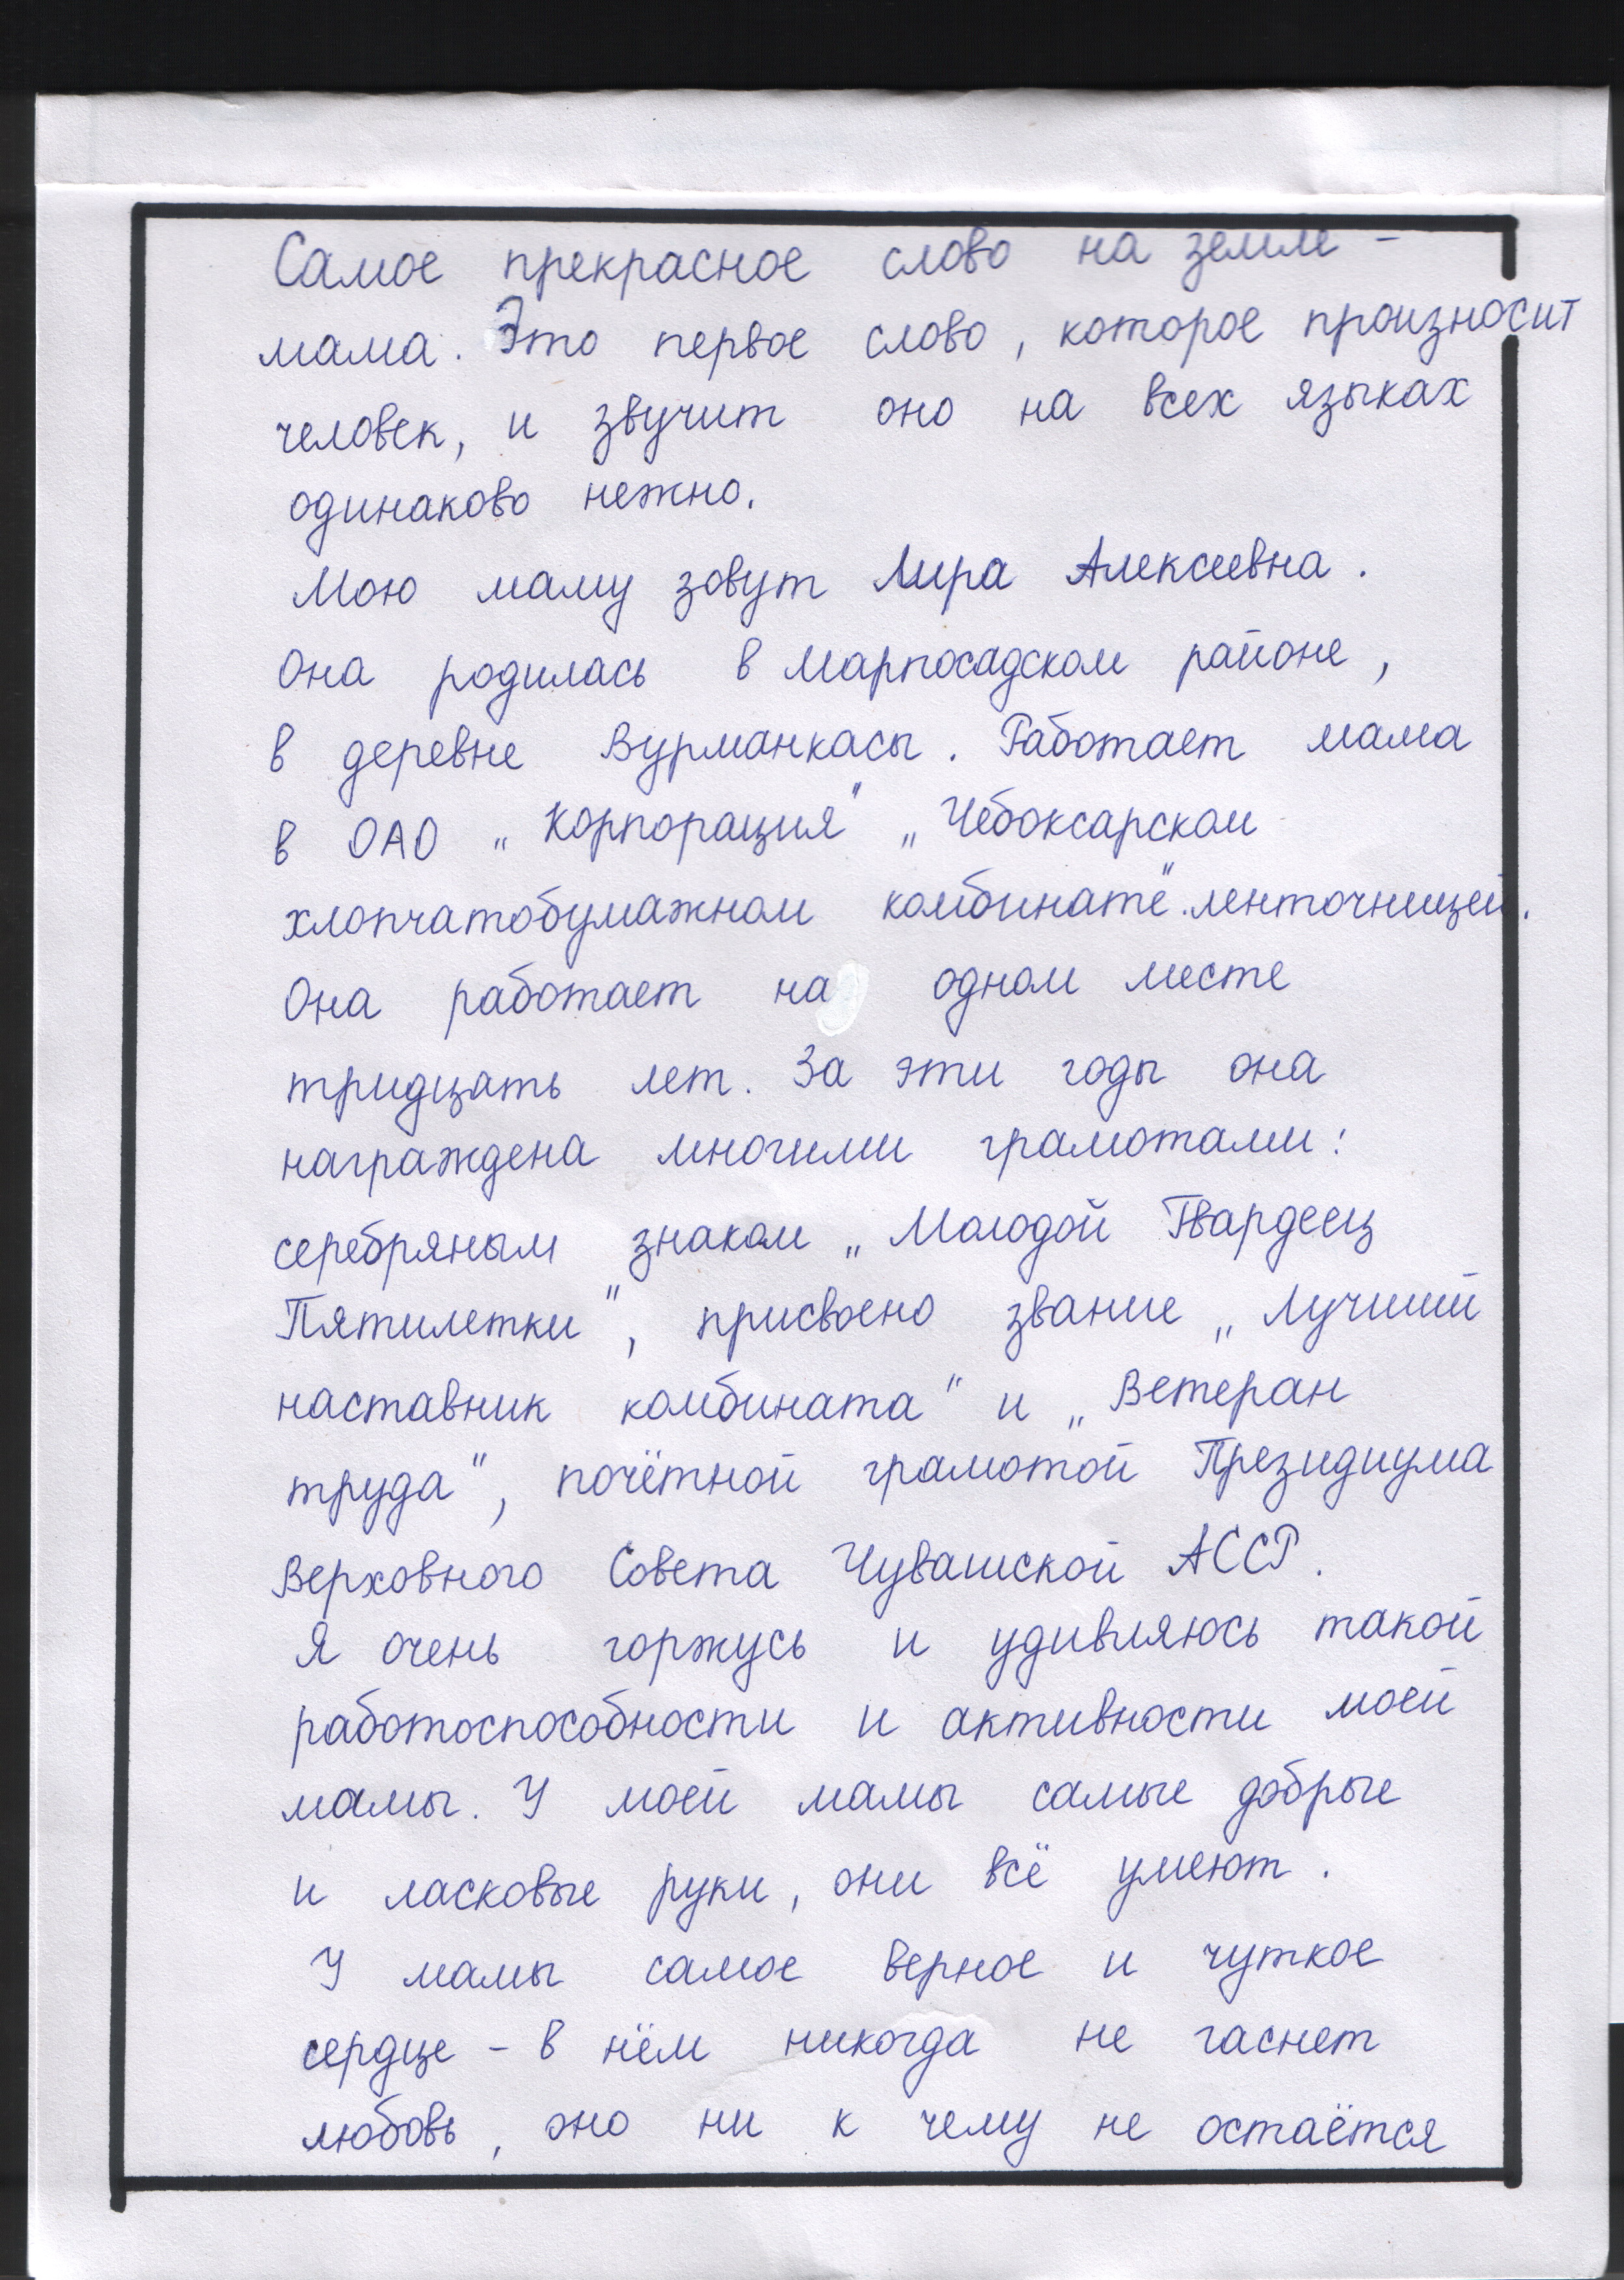 Самое прекрасное слово на земле -
мама. Это первое слово, которое произносит
человек, и звучит оно на всех языках
одинаково нежно.
Мою маму зовут Лира Алексеевна.
Она родилась в Марпосадском районе,
в деревне Вурманкасы. Работает мама
в ОАО „Корпорация" „Чебоксарском
хлопчатобумажном комбинате". ленточницей.
Она работает на одном месте
тридцать лет. За эти годы она
награждена многими грамотами:
серебряным знаком „Молодой Гвардеец
Пятилетки", присвоено звание „Лучший
наставник комбината" и „Ветеран
труда", почётной грамотой Президиума
Верховного Совета Чувашской АССР.
Я очень горжусь и удивляюсь такой
работоспособности и активности моей
мамы. У моей мамы самые добрые
и ласковые руки, они всё умеют.
У мамы самое верное и чуткое
сердце - в нём никогда не гаснет
любовь, оно ни к чему не остаётся